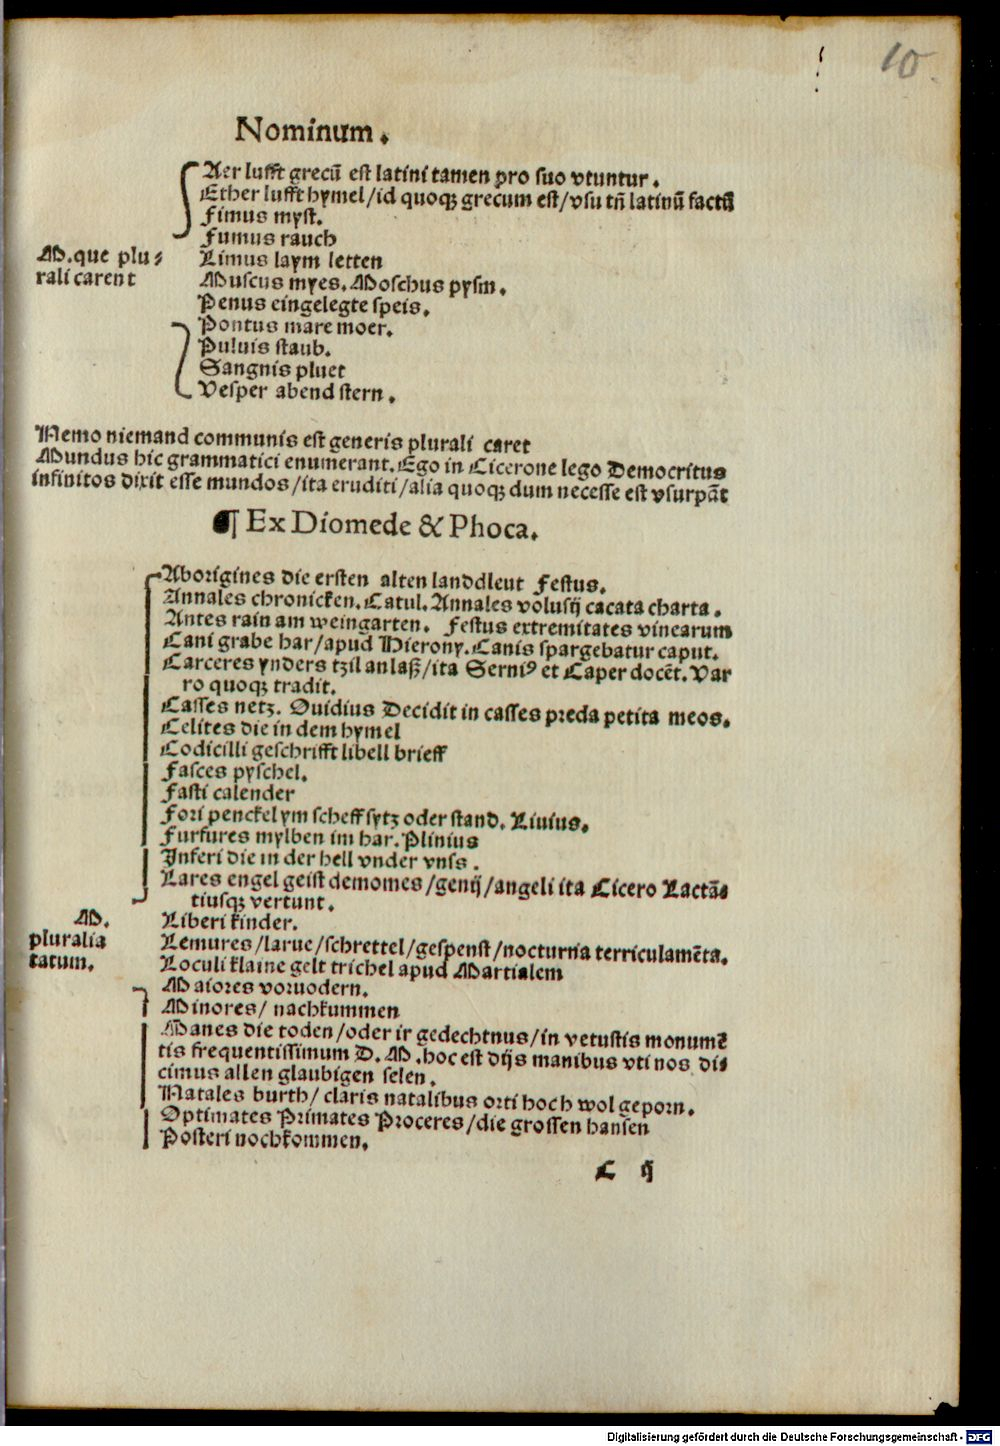 10
Nominum.
Aer lufft grecū est latini tamen pro suo vtuntur.
Ether lufft hymel/id quoqꝫ grecum est/vsu tñ latinū factū
Fimus myst.
Fumus rauch
M.que plu⸗
rali carent
Limus laym letten
Muscus myes. Moschus pysm.
Penus eingelegte speis.
Pontus mare moer.
Puluis staub.
Sangnis pluet
Vesper abend stern.
Nemo niemand communis est generis plurali caret
Mundus hic grammatici enumerant. Ego in Cicerone lego Democritus
infinitos dixit esse mundos/ita eruditi/alia quoqꝫ dum necesse est vsurpāt
¶ Ex Diomede & Phoca.
Aborigines die ersten alten landdleut Festus.
Annales chronicken. Catul. Annales volusij cacata charta.
Antes rain am weingarten. Festus extremitates vinearum
Cani grabe har/apud Hierony. Canis spargebatur caput.
Carceres ynders tzil anlaß/ita Serniꝰ et Caper docēt. Var
ro quoqꝫ tradit.
Casses netz. Ouidius Decidit in casses preda petita meos.
Celites die in dem hymel
Codicilli geschrifft libell brieff
Fasces pyschel.
Fasti calender
Fori penckel ym scheff sytz oder stand. Liuius.
Furfures mylben im har. Plinius
Inferi die in der hell vnder vnss.
Lares engel geist demomes/genij/angeli ita Cicero Lactā⸗
tiusqꝫ vertunt.
M.
pluralia
tatum.
Liberi kinder.
Lemures/larue/schrettel/gespenst/nocturna terriculamēta.
Loculi klaine gelt trichel apud Martialem
Maiores voruodern.
Minores/ nachkummen
Manes die toden/oder ir gedechtnus/in vetustis monumē
tis frequentissimum D. M. hoc est dijs manibus vti nos di⸗
cimus allen glaubigen selen.
Natales burth/ claris natalibus orti hoch wol geporn.
Optimates Primates Proceres/die grossen hansen
Posteri nochkommen.
C ij
Digitalisierung gefördert durch die Deutsche Forschungsgemeinschaft - DFG